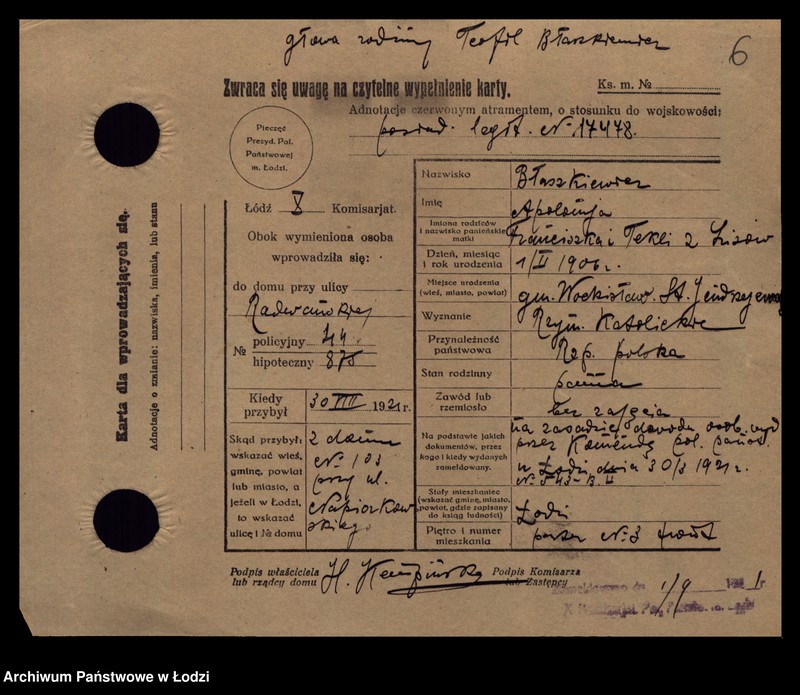 głowa rodziny Teofil Błaszkiewicz
6
Zwraca się uwagę na czytelne wypełnienie karty.
Ks. m. №
Adnotacje czerwonym atramentem, o stosunku do wojskowości;
legit. № 17478.
Pieczęć
Prezyd. Pol.
Państwowej
m. Łodzi.
Łódź X Komisarjat.
Obok wymieniona osoba
wprowadziła się:
do domu przy ulicy
Radwańskiej
№ policyjny 44
hipoteczny 875
Kiedy przybył 30 VIII 1921 r.
Skąd przybył:
wskazać wieś,
gminę, powiat
lub miasto, a
jeżeli w Łodzi,
to wskazać
ulicę i № domu
z domu
№ 103
przy ul.
Napiórkow
skiego
Nazwisko Błaszkiewicz
Imię Apolonja
Imiona rodziców
i nazwisko panieńskie
matki
Franciszka i Tekli z
Dzień, miesiąc
i rok urodzenia
1/II 1906 r.
Miejsce urodzenia
(wieś, miasto, powiat)
gm.
Wyznanie Rzym. Katolickie
Przynależność
państwowa
Rzp. polska
Stan rodzinny panna
Zawód lub
rzemiosło
bez zajęcia
Na podstawie jakich
dokumentów, przez
kogo i kiedy wydanych
zameldowany.
na zasadzie dowodu osob. wyd
przez Komendę pol. państ.
w Łodzi dnia 30/3 1921 r.
Stały mieszkaniec
(wskazać gminę, miasto,
powiat, gdzie zapisany
do ksiąg ludności)
Łodzi
Piętro i numer
mieszkania
parter № 3 front
Podpis właściciela
lub rządcy domu
H.
Podpis Komisarza
lub Zastępcy
1/9
Karta dla wprowadzających się.
Adnotacje o zmianie: nazwiska, imienia, lub stanu
Archiwum Państwowe w Łodzi